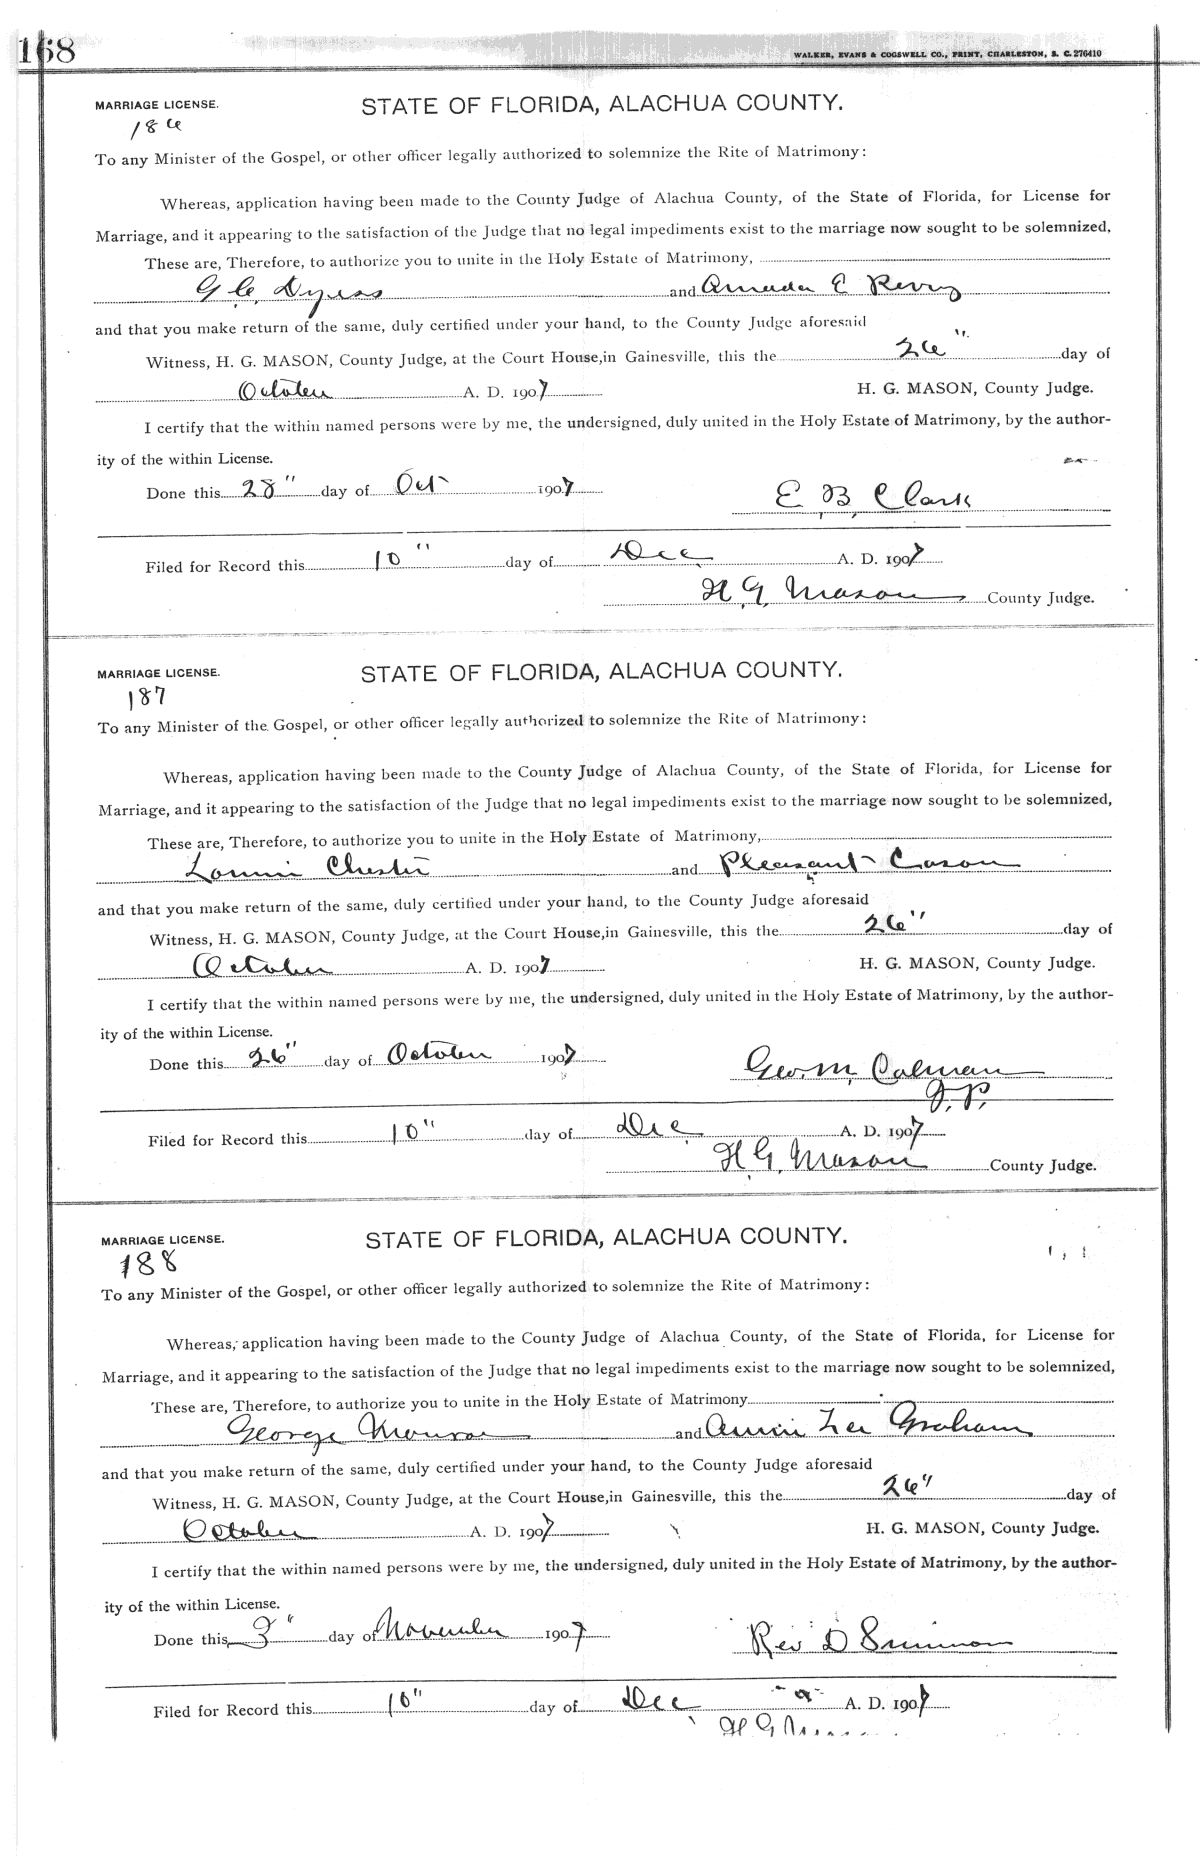 168
WALKER, EVANS & COGSWELL CO., PRINT, CHARLESTON, S. C. 276410
MARRIAGE LICENSE.
STATE OF FLORIDA, ALACHUA COUNTY.
186
To any Minister of the Gospel, or other officer legally authorized to solemnize the Rite of Matrimony:
Whereas, application having been made to the County Judge of Alachua County, of the State of Florida, for License for
Marriage, and it appearing to the satisfaction of the Judge that no legal impediments exist to the marriage now sought to be solemnized,
These are, Therefore, to authorize you to unite in the Holy Estate of Matrimony,
G. C. Dyess and Amada E Perry
and that you make return of the same, duly certified under your hand, to the County Judge aforesaid
Witness, H. G. MASON, County Judge, at the Court House, in Gainesville, this the 26" day of
October A. D. 1907 H. G. MASON, County Judge.
I certify that the within named persons were by me, the undersigned, duly united in the Holy Estate of Matrimony, by the author-
ity of the within License.
Done this 28" day of Oct 1907 E. B. Clark
Filed for Record this 10" day of Dec A. D. 1907
H. G. Mason County Judge.
MARRIAGE LICENSE.
STATE OF FLORIDA, ALACHUA COUNTY.
187
To any Minister of the Gospel, or other officer legally authorized to solemnize the Rite of Matrimony:
Whereas, application having been made to the County Judge of Alachua County, of the State of Florida, for License for
Marriage, and it appearing to the satisfaction of the Judge that no legal impediments exist to the marriage now sought to be solemnized,
These are, Therefore, to authorize you to unite in the Holy Estate of Matrimony,
Lonnie Chester and Pleasant Cason
and that you make return of the same, duly certified under your hand, to the County Judge aforesaid
Witness, H. G. MASON, County Judge, at the Court House, in Gainesville, this the 26" day of
October A. D. 1907 H. G. MASON, County Judge.
I certify that the within named persons were by me, the undersigned, duly united in the Holy Estate of Matrimony, by the author-
ity of the within License.
Done this 26" day of October 1907 Geo. M. Colman
J. P.
Filed for Record this 10" day of Dec A. D. 1907
H. G. Mason County Judge.
MARRIAGE LICENSE.
STATE OF FLORIDA, ALACHUA COUNTY.
188
To any Minister of the Gospel, or other officer legally authorized to solemnize the Rite of Matrimony:
Whereas, application having been made to the County Judge of Alachua County, of the State of Florida, for License for
Marriage, and it appearing to the satisfaction of the Judge that no legal impediments exist to the marriage now sought to be solemnized,
These are, Therefore, to authorize you to unite in the Holy Estate of Matrimony
George Monroe and Annie Lee Graham
and that you make return of the same, duly certified under your hand, to the County Judge aforesaid
Witness, H. G. MASON, County Judge, at the Court House, in Gainesville, this the 26" day of
October A. D. 1907 H. G. MASON, County Judge.
I certify that the within named persons were by me, the undersigned, duly united in the Holy Estate of Matrimony, by the author-
ity of the within License.
Done this 3" day of November 1907 Rev D
Filed for Record this 10" day of Dec A. D. 1907
H G Mason